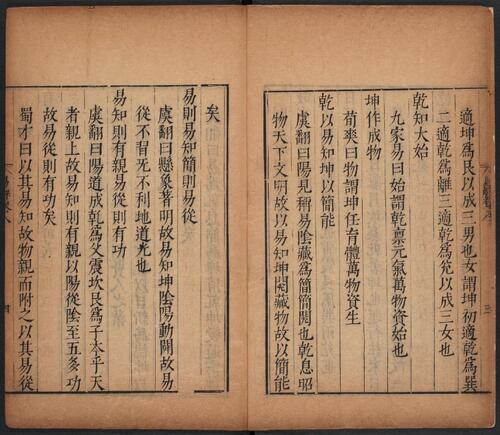 適坤爲艮以成三男也女謂坤初適乾爲巽
二適乾爲離三適乾爲兊以成三女也
乾知大始
九家易曰始謂乾禀元氣萬物資始也
坤作成物
荀爽曰物謂坤任育體萬物資生
乾以易知坤以簡能
虞翻曰陽見稱易陰藏爲簡簡閱也乾息昭
物天下文明故以易知坤閱藏物故以簡能
三
矣
易則易知簡則易從
虞翻曰懸象著明故易知坤陰陽動闢故易
從不習无不利地道光也
易知則有親易從則有功
虞翻曰陽道成乾爲父震坎艮爲子本乎天
者親上故易知則有親以陽從陰至五多功
故易從則有功矣
蜀才曰以其易知故物親而附之以其易從
四